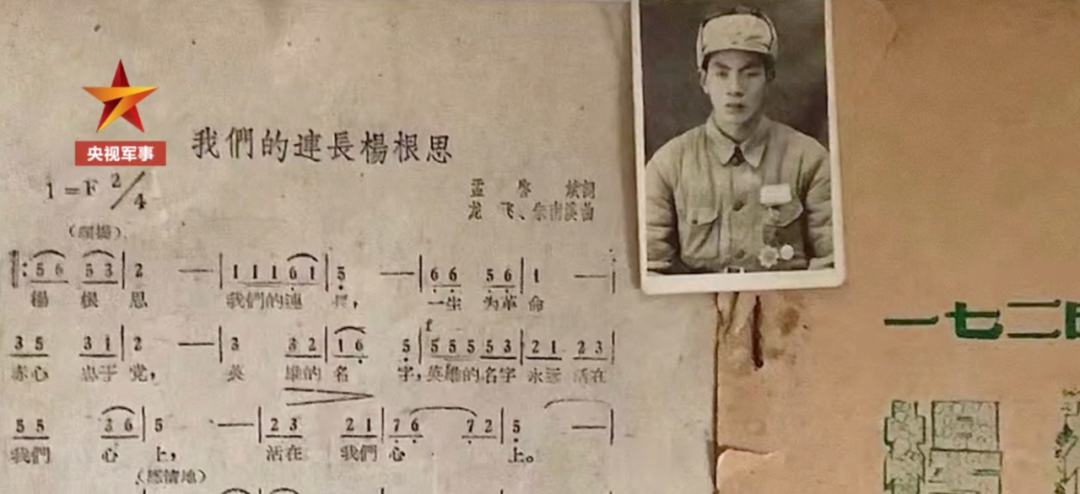 央视军事
我們的連長楊根思
1=F 2/4
龙飞、朱南溪曲
5 6 5 3 2 — 1 1 1 6 1 5 — 6 6 5 6 1 —
楊根思 我們的連長, 一生为革命
3 5 3 1 2 — 3 3 2 1 6 5 5 5 5 5 3 2 1 2 3
赤心忠于党, 英雄的名字,英雄的名字永远活在
5 5 3 6 5 — 2 3 2 1 7 6 7 2 5 —
我們心上, 活在我們心上。
一七二